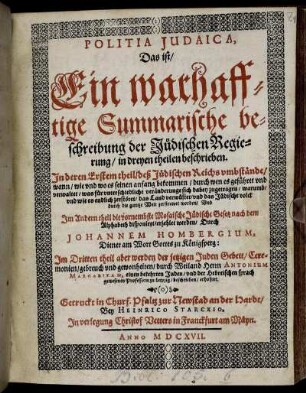 POLITIA JUDAICA,
Das ist/
Ein warhaff-
tige Summarische be-
schreibung der Jüdischen Regie-
rung/ in dreyen theilen beschrieben.
In deren Erstem theil/ deß Jüdischen Reichs umbstände/
wann/ wie und wo es seinen anfang bekommen/ durch wen es geführet und
verwaltet: was für unterschiedliche veränderungen sich dabey zugetragen: warumb/
und wie es entlich zerstöret/ das Land verwüstet und das Jüdische volck
durch die gantze Welt zerstrewet worden: Von
Im Andern theil die fürnembste Mosaische Jüdische Gesetz nach dem
Alphabeth disponiret worden/ Durch
JOHANNEM HOMBERGIUM,
Diener am Wort Gottes zu Königsperg:
Im Dritten theil aber werden der jetzigen Juden Gebett/ Cere-
monien/ gebreuch und gewonheiten/ durch Weiland Herrn ANTONIUM
MARGARITAM, einen bekehrten Juden/ und der Hebreischen sprach
gewesenen Professorn zu Leipzig/ beschrieben/ erholet.
Getruckt in Churf. Pfaltz zur Newstad an der Hardt/
Bey HEINRICO STARCKIO,
In verlegung Christof Vetters in Franckfurt am Mäyn.
ANNO MDCXVII.